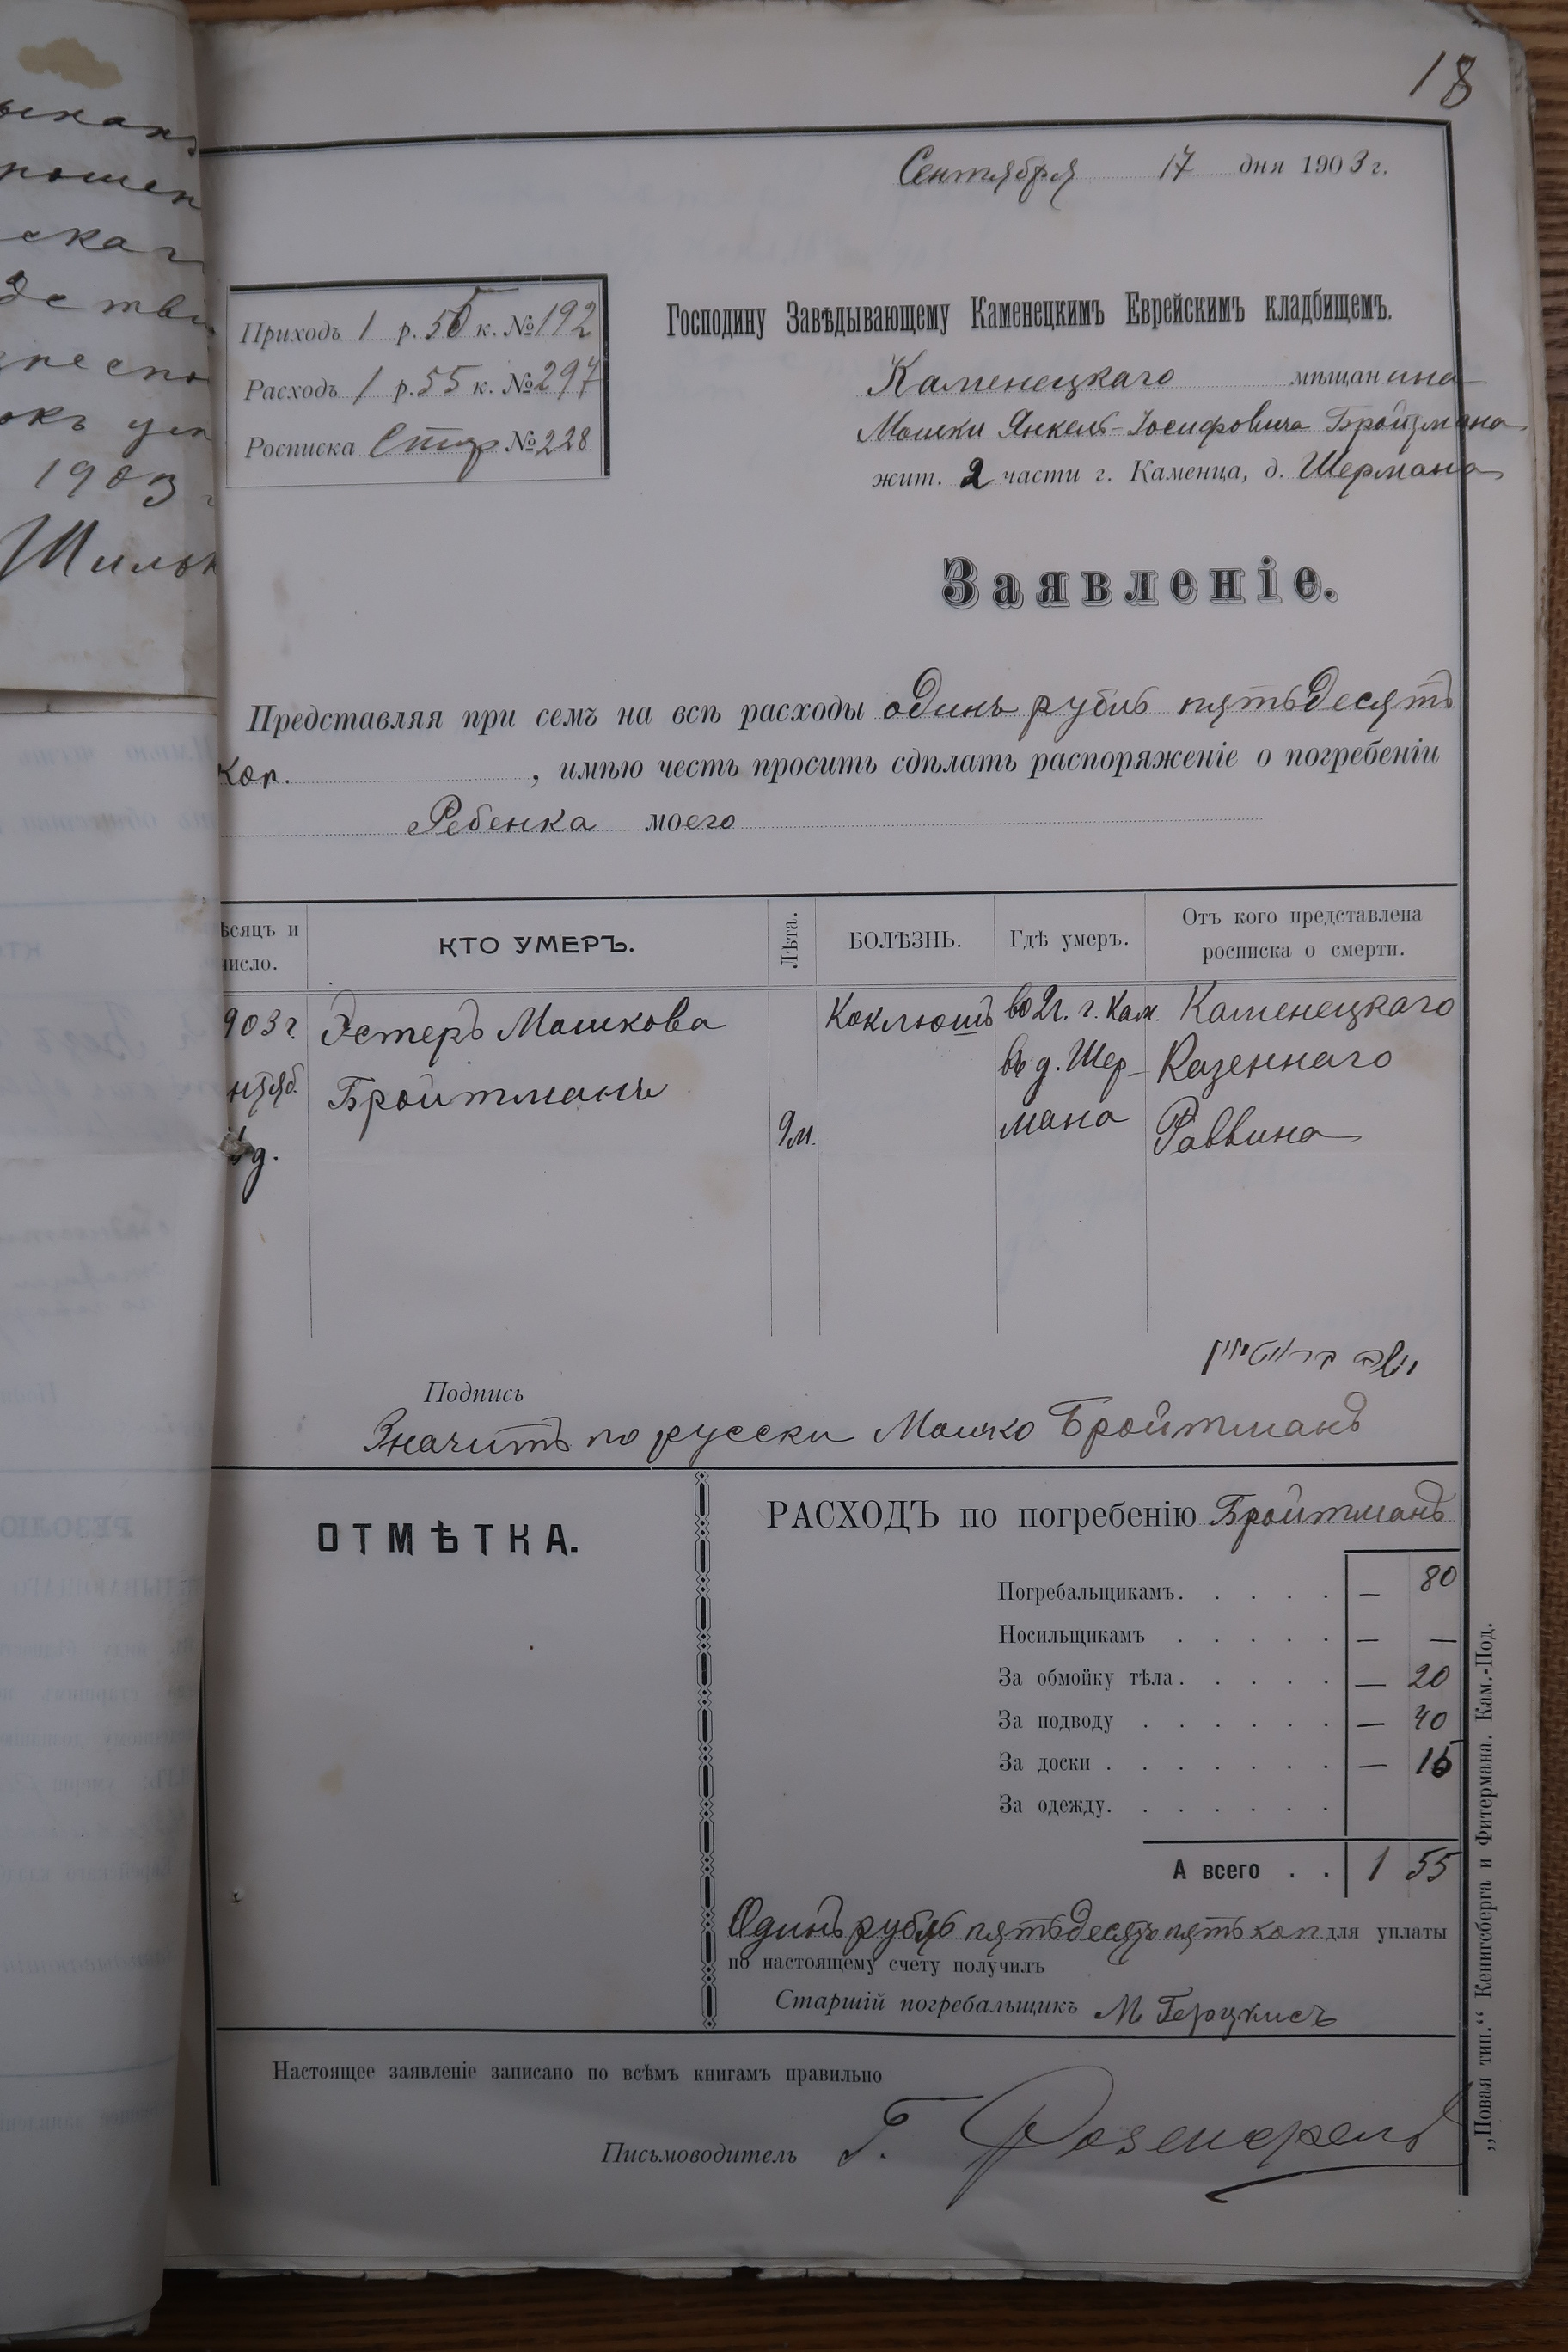 18
Сентября 17 дня 1903 г.
Приходъ 1 р. 50 к. № 192
Расходъ 1 р. 55 к. № 297
Росписка № 228
Господину Завѣдывающему Каменецкимъ Еврейскимъ кладбищемъ.
Каменецкаго мѣщанина
Мошки Янкель-Іосифовича Бройтмана
жит. 2 части г. Каменца, д. Шермана
Заявленіе.
Представляя при семъ на всѣ расходы одинъ рубль пятьдесятъ
коп. , имѣю честь просить сдѣлать распоряженіе о погребеніи
Ребенка моего
ѣсяцъ и число.
КТО УМЕРЪ.
Лѣта.
БОЛѢЗНЬ.
Гдѣ умеръ.
Отъ кого представлена росписка о смерти.
903 г. Эстеръ Мошкова Коклюшъ во 2 ч. г. Кам. Каменецкаго
нтяб. Бройтманъ въ д. Шер- Казеннаго
д. 9 м. мана Раввина
משה ברויטמאן
Подпись
Значитъ по русски Мошко Бройтманъ
ОТМѢТКА.
РАСХОДЪ по погребенію Бройтманъ
Погребальщикамъ. . . . . — 80
Носильщикамъ . . . . . — —
За обмойку тѣла. . . . . — 20
За подводу . . . . . . — 40
За доски . . . . . . . — 15
За одежду. . . . . . .
А всего . . 1 55
Одинъ рубль пятьдесятъ пять коп для уплаты
по настоящему счету получилъ
Старшій погребальщикъ М
Настоящее заявленіе записано по всѣмъ книгамъ правильно
Письмоводитель Г. Розенфельд
„Новая тип.“ Кенигсберга и Фитермана. Кам.-Под.
1903